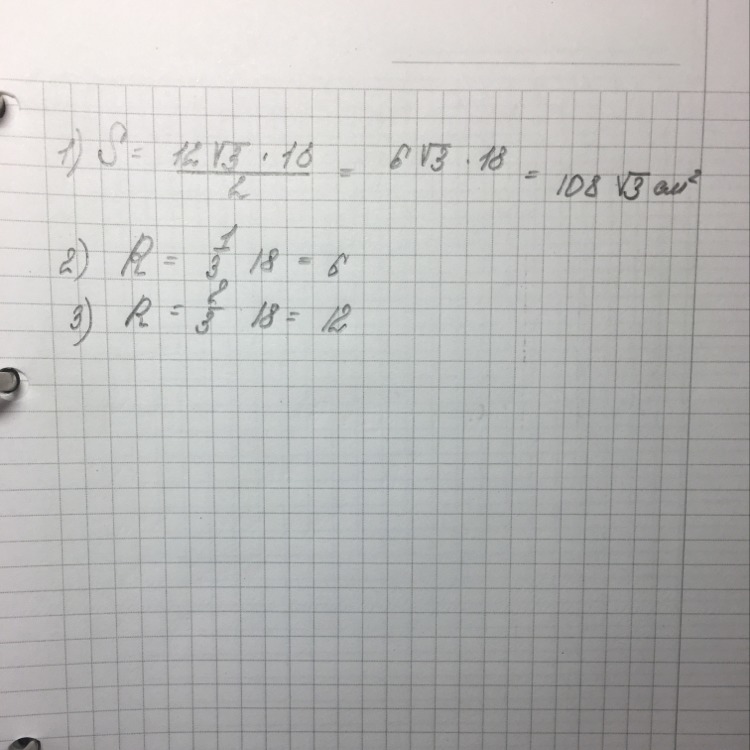 1) S = 12√3 · 18 / 2 = 6√3 · 18 = 108√3 см²
2) R = 1/3 18 = 6
3) R = 2/3 18 = 12